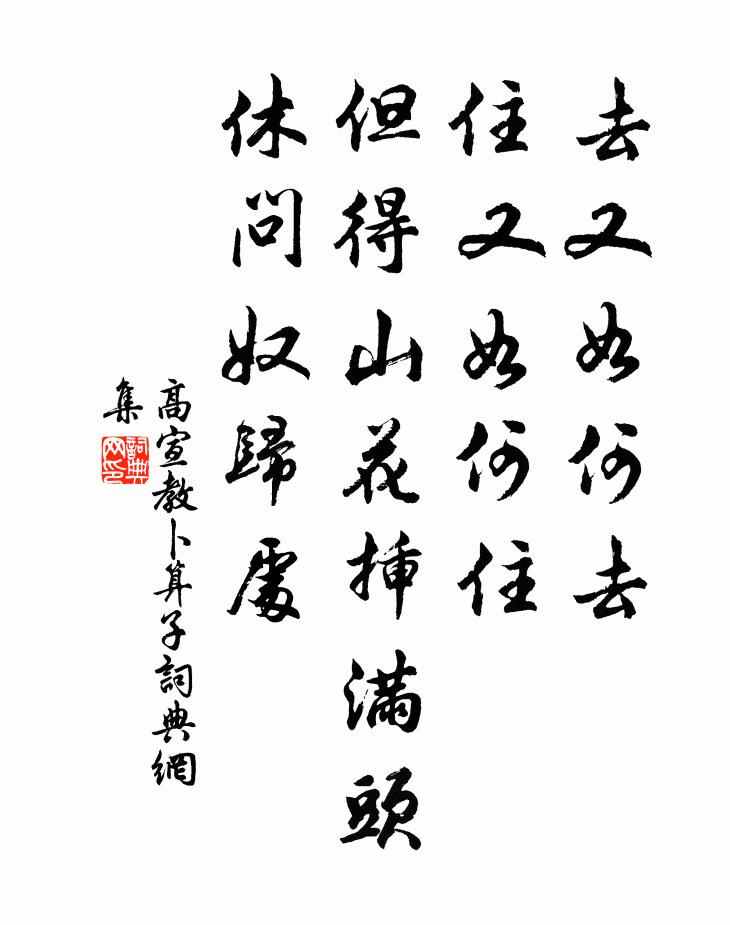 去又如何去
住又如何住
但得山花插滿頭
休問奴歸處
高宣教卜算子詞典網
集
詞典
网印